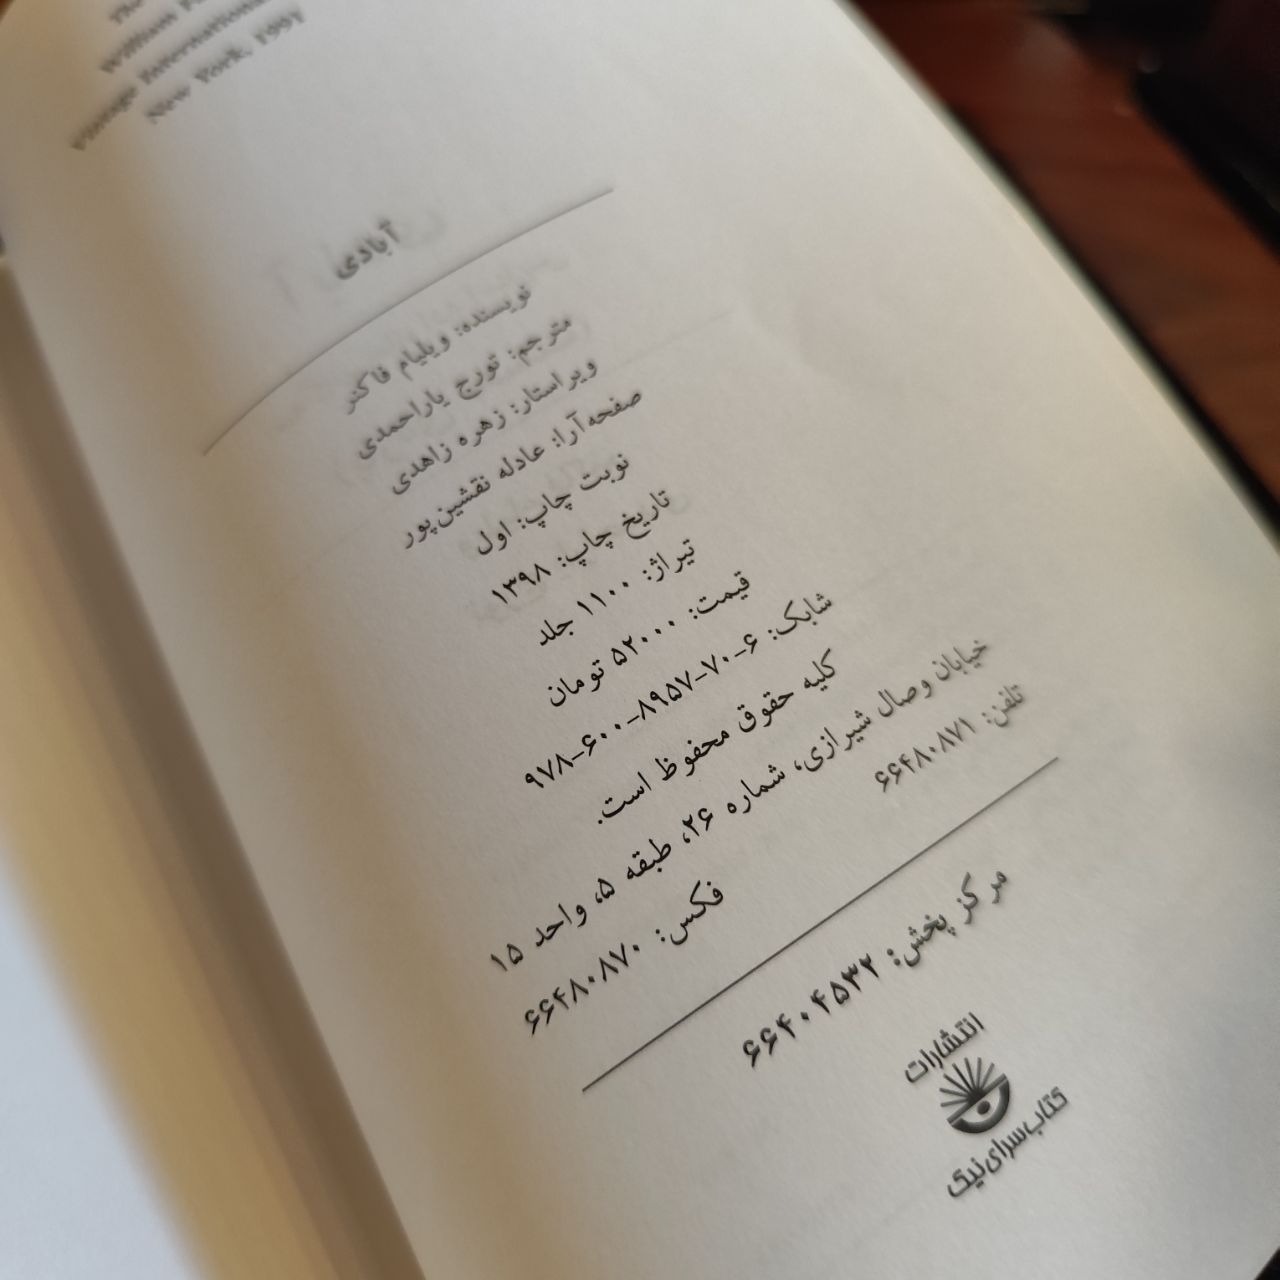 The
William
Vintage International
New York, 1991
آبادی
نویسنده: ویلیام فاکنر
مترجم: تورج یاراحمدی
ویراستار: زهره زاهدی
صفحه‌آرا: عادله نقشین‌پور
نوبت چاپ: اول
تاریخ چاپ: ۱۳۹۸
تیراژ: ۱۱۰۰ جلد
قیمت: ۵۲۰۰۰ تومان
شابک: ۶-۷۰-۸۹۵۷-۶۰۰-۹۷۸
کلیه حقوق محفوظ است.
خیابان وصال شیرازی، شماره ۲۶، طبقه ۵، واحد ۱۵
تلفن: ۶۶۴۸۰۸۷۱ فکس: ۶۶۴۸۰۸۷۰
مرکز پخش: ۶۶۴۰۴۵۳۲
انتشارات
کتاب‌سرای نیک